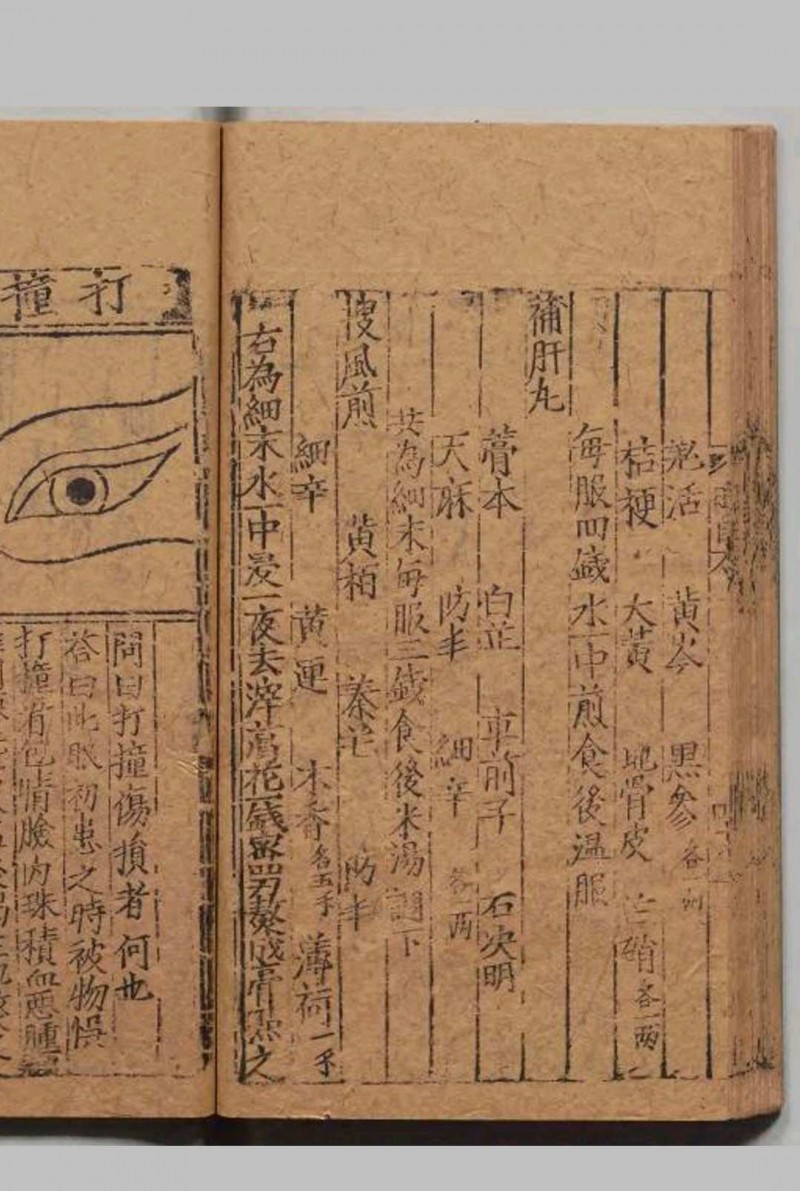 羗活 黄芩 黑參 各一兩
桔梗 大黄 地骨皮 芒硝 各一兩
每服四錢水一中煎食後温服
補肝丸
藁本 白芷 車前子 石决明
天麻 防丰 細辛 各一兩
共為細末每服三錢食後米湯調下
搜風煎 黄栢 秦芃 防丰
細辛 黄連 木香 各五手 薄荷 一手
右為細末水一中浸一夜去滓
打撞
問曰打撞傷損者何也
答曰此眼初患之時被物悞
打撞有色睛臉内珠積血惡腫